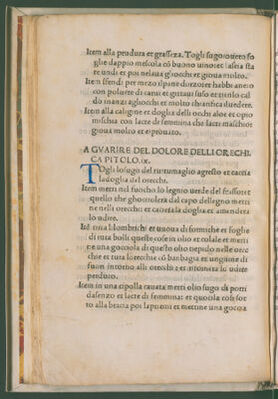 Item alla pendura et grassezza. Togli sugo
glie dappio mescola cō buono uino et lascia sta
re un di et poi nelaua gliocchi et gioua molto.
Item
con poluere di et cal
do inanzi agliocchi et molto
Item alla caligine et doglia delli occhi aloe et opio
mischia con lacte di femmina che lacte maschio
gioua molto et e prouato.
A GVARIRE DEL DOLORE DELLI ORECHI.
CA PITOLO.IX.
TOgli losugo del agresto et caccia
ladoglia del orecchi.
Item metti nel fuocho lo legnio uerde del frassore
quello che ghociolera dal capo dellegno metti
ne nelli orecchi et cacera la doglia et amendera
lo udire.
Itē trita lilombrichi et unoua di formiche et foglie
di ruta bolli queste cose in olio et colale et metti
ne una gocciola di questo olio tiepido nelle orec
chie et tura lorecchie cō banbagia et ungnine di
fuori intorno alli orecchi et ritornera lo udire
perduto.
Item in una cipolla cauata metti olio sugo di porri
dasenzo et lacte di femmina et quocila cosi sot
to alla bracia poi lapriemi et mettine una goccia